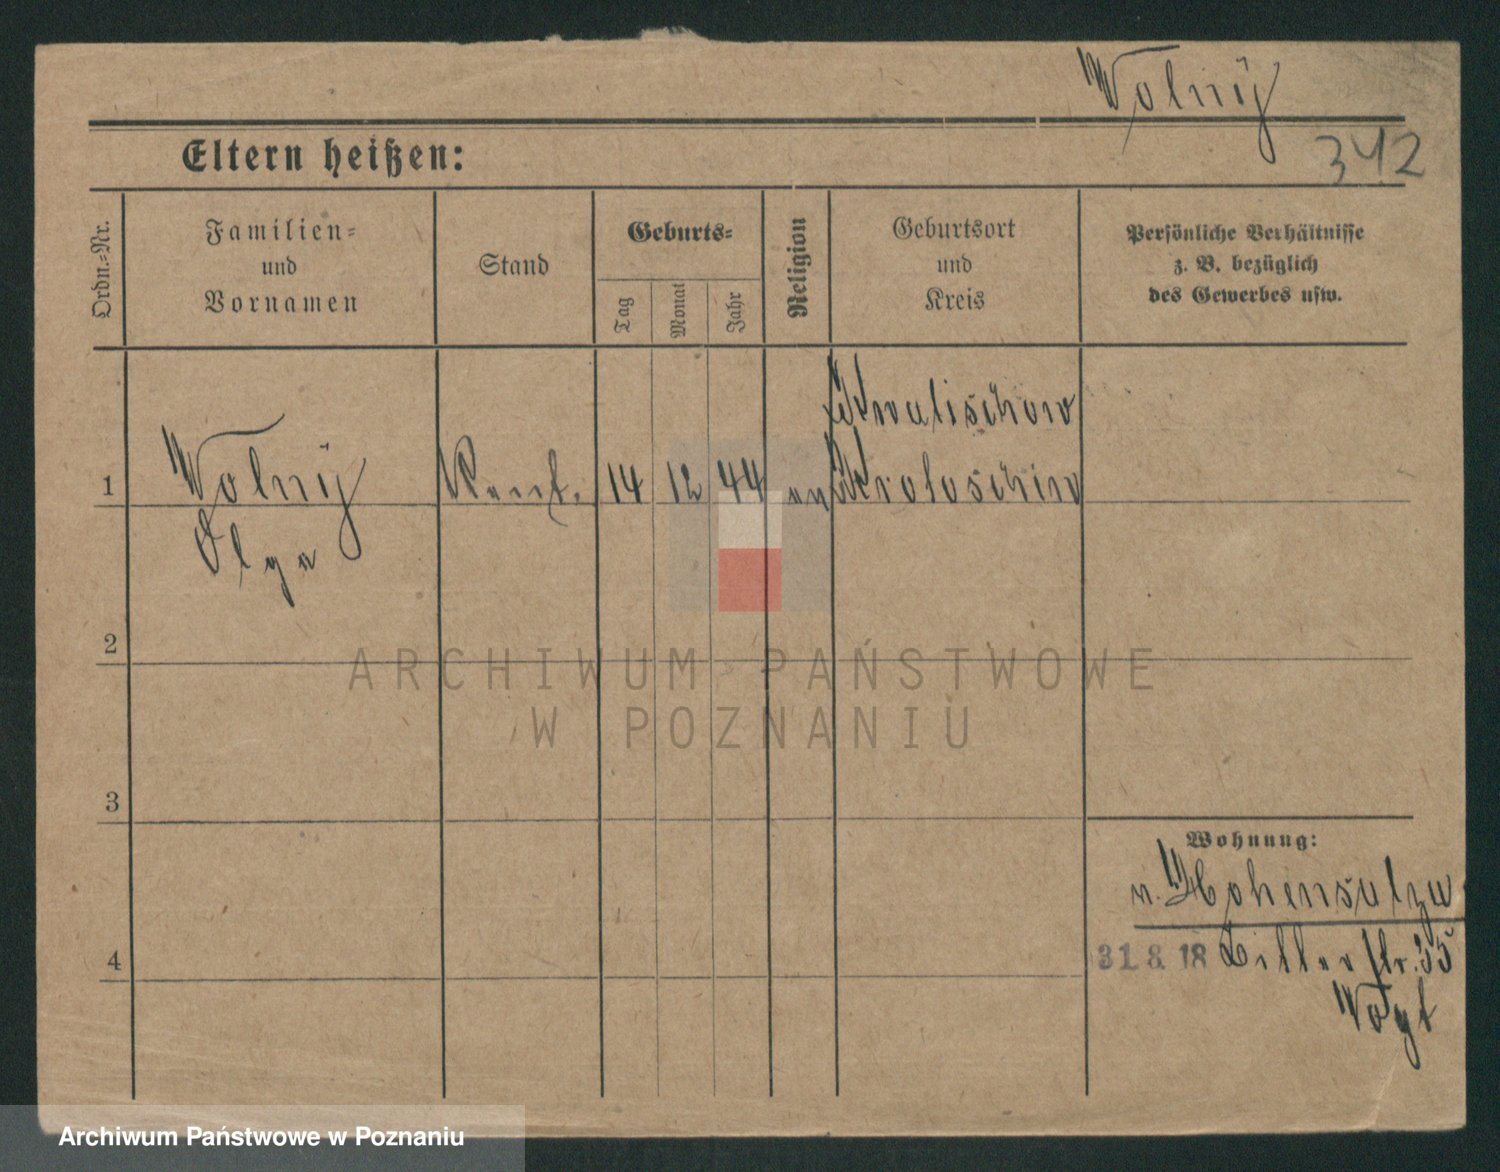 Wolny
342
Eltern heißen:
Ordn.-Nr.
Familien- und Vornamen
Stand
Geburts-
Tag
Monat
Jahr
Religion
Geburtsort und Kreis
Persönliche Verhältnisse z. B. bezüglich des Gewerbes usw.
1
Wolny
Olga
Rent.
14
12
44
ev
Kwalischow
Krotoschin
2
3
4
Wohnung:
n. Hohensalza
31. 8. 18
str. 35
Vogt
ARCHIWUM PAŃSTWOWE
W POZNANIU
Archiwum Państwowe w Poznaniu